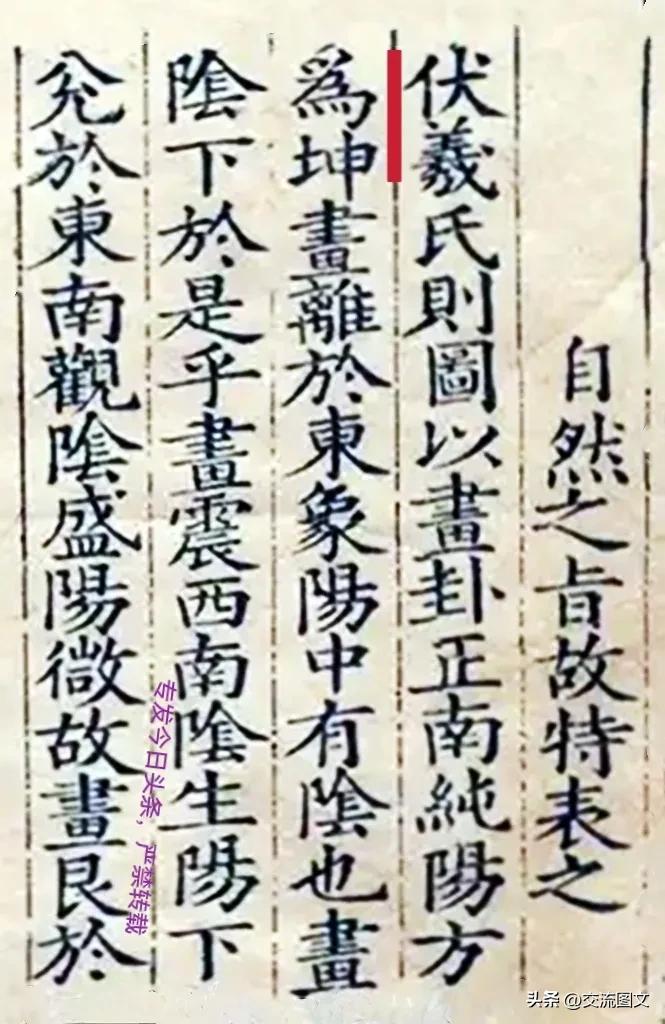 自然之旨故特表之
伏羲氏則圖以畫卦正南純陽方
為坤畫離於東象陽中有陰也畫
陰下於是乎畫震西南陰生陽下
兊於東南觀陰盛陽微故畫艮於
专发今日头条，严禁转载
头条 @交流图文